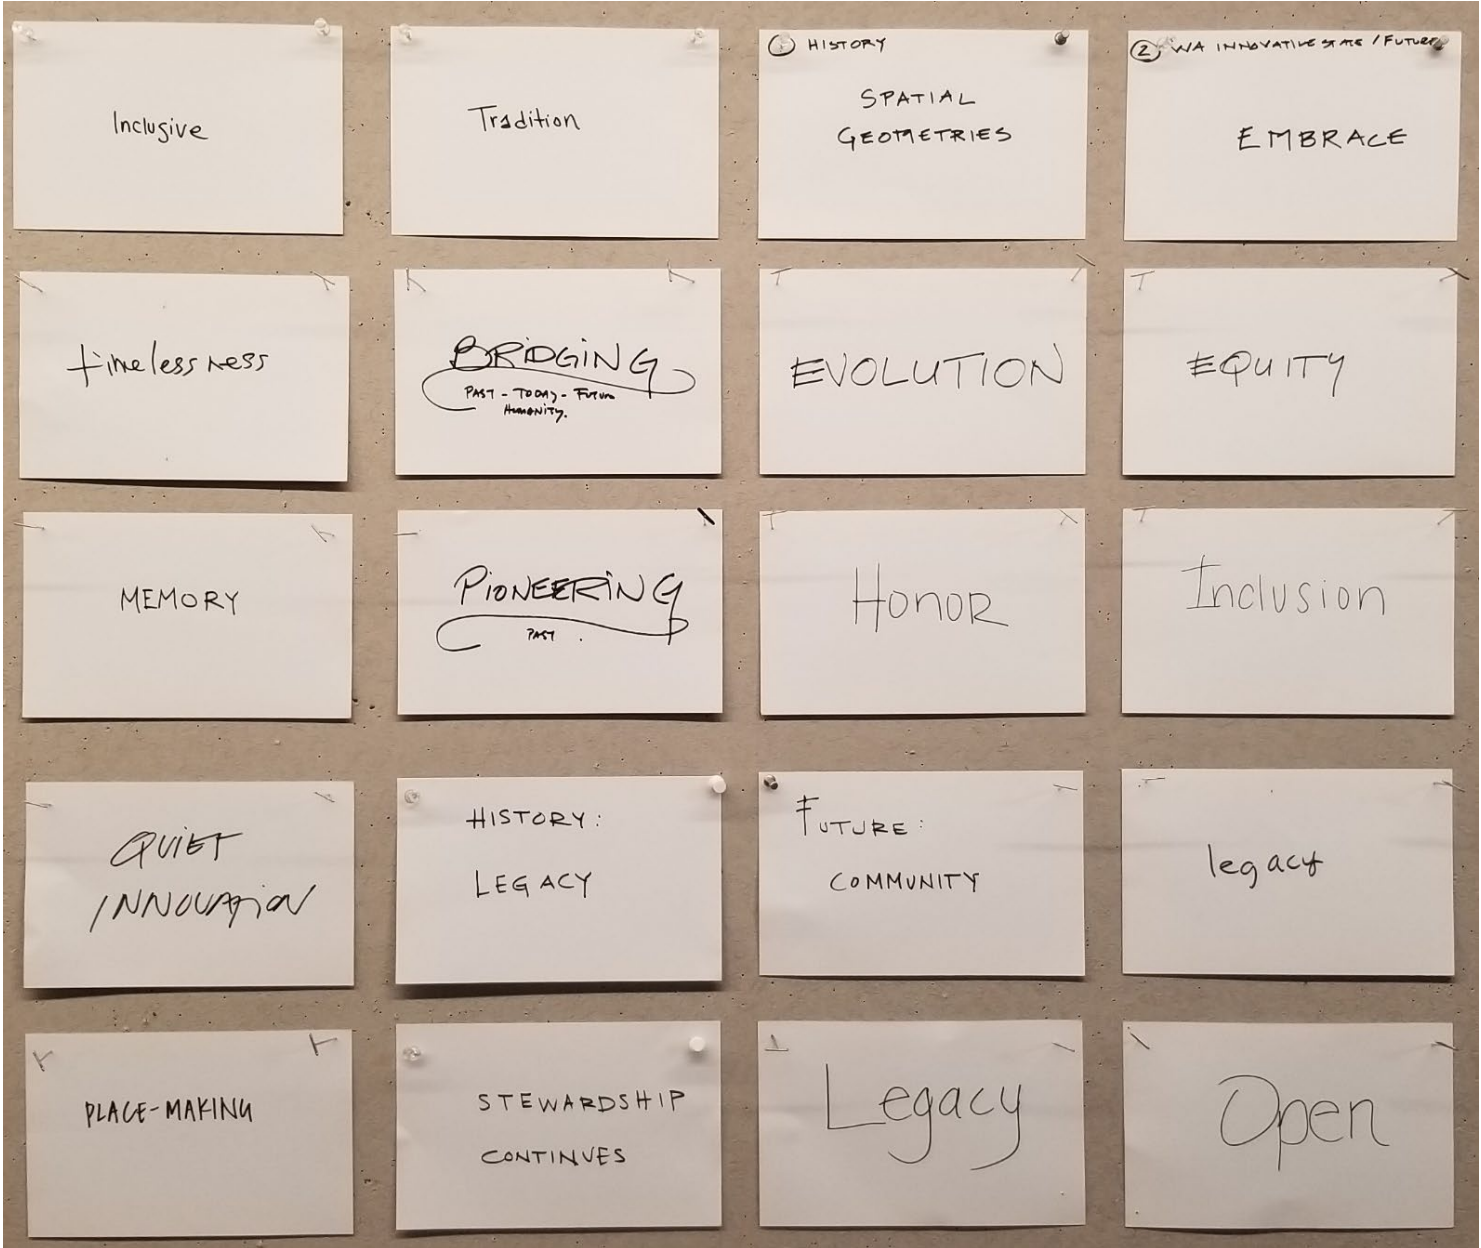 Inclusive
Tradition
① HISTORY
SPATIAL
GEOMETRIES
② WA INNOVATIVE STATE / FUTURE
EMBRACE
timelessness
BRIDGING
PAST - TODAY - FUTURE
HUMANITY.
EVOLUTION
EQUITY
MEMORY
PIONEERING
PAST .
Honor
Inclusion
QUIET
INNOVATION
HISTORY:
LEGACY
FUTURE:
COMMUNITY
legacy
PLACE-MAKING
STEWARDSHIP
CONTINUES
Legacy
Open